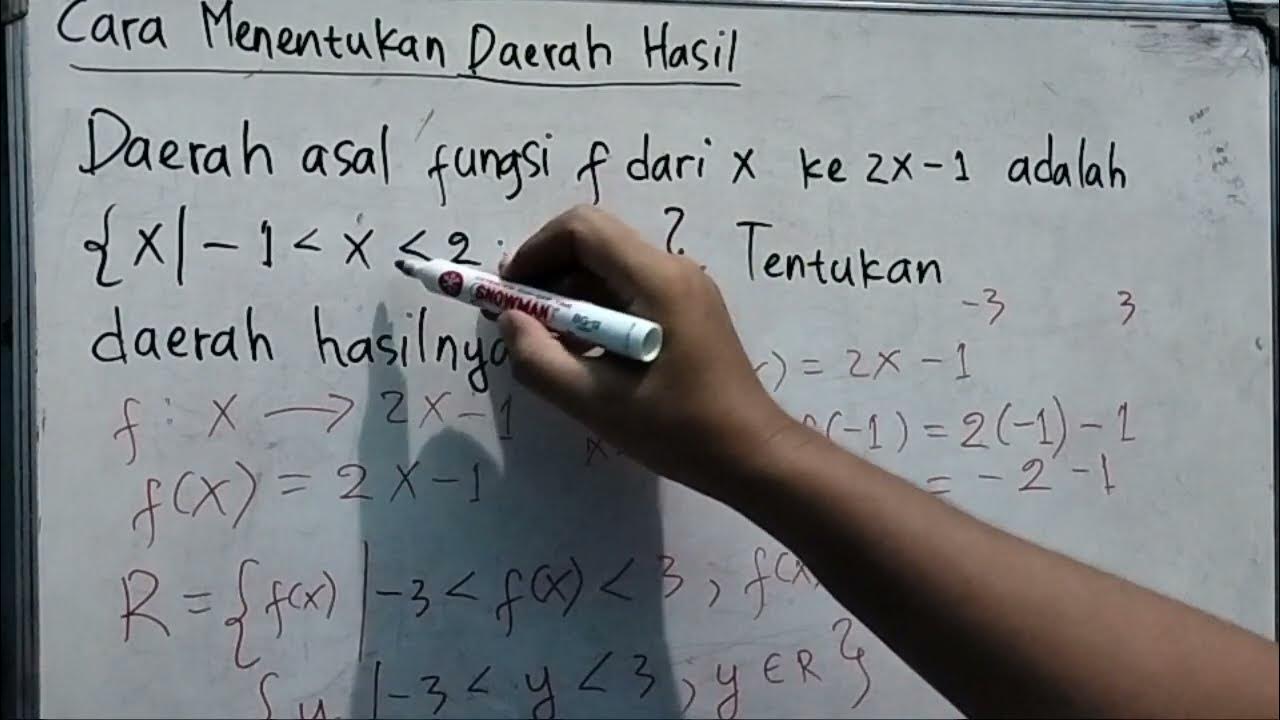 Cara Menentukan Daerah Hasil
Daerah asal fungsi f dari x ke 2x-1 adalah
{x|-1<x<2 }. Tentukan
daerah hasilnya
-3 3
f : x → 2x-1
) = 2x-1
f(x) = 2x-1
(-1) = 2(-1)-1
= -2-1
R = {f(x) | -3 < f(x) < 3, f(x
{y | -3 < y < 3, y ∈ R}
SNOWMAN